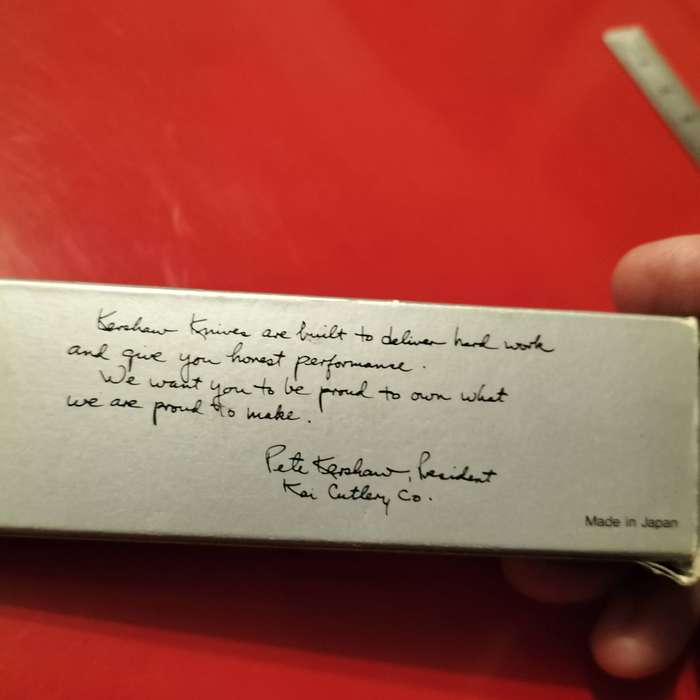 Kershaw Knives are built to deliver hard work
and give you honest performance.
We want you to be proud to own what
we are proud to make.
Pete Kershaw, President
Kai Cutlery Co.
Made in Japan